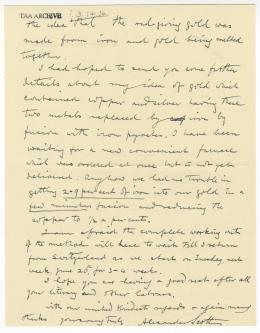 TAA ARCHIVE
the idea that the red giving gold was
made from iron and gold being melted
together.
I had hoped to send you some further
details about my idea of gold which
contained copper and silver having these
two metals replaced by iron by
fusion with iron pyrites. I have been
waiting for a new convenient furnace
which was ordered at once but is not yet
delivered. Anyhow we had no trouble in
getting 2-9 per cent of iron into our gold in a
few minutes fusion and reducing the
copper to ½ a per cent.
I am afraid the complete working out
of the method will have to wait till I return
from Switzerland as we start on Tuesday next
week, June 25, for 3-4 weeks.
I hope you are having a good rest after all
your literary and other labours.
With our united kindest regards & again many
thanks yours very truly Alexander Scott